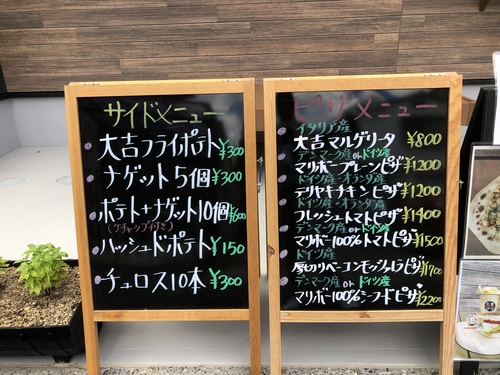 サイドメニュー
大吉フライポテト ¥300
ナゲット5個 ¥300
ポテト+ナゲット10個 ¥600
(ケチャップ付き)
ハッシュドポテト ¥150
チュロス10本 ¥300
ピザメニュー
イタリア産
大吉マルゲリータ ¥800
デンマーク産orドイツ産
マリボープレーンピザ ¥1200
ドイツ産・オランダ産
テリヤキチキンピザ ¥1200
ドイツ産・オランダ産
フレッシュトマトピザ ¥1400
デンマーク産orドイツ産
マリボー100%トマトピザ ¥1500
ドイツ産
厚切りベーコンモッツァレラピザ ¥1700
デンマーク産orドイツ産
マリボー100%シーフードピザ ¥2200